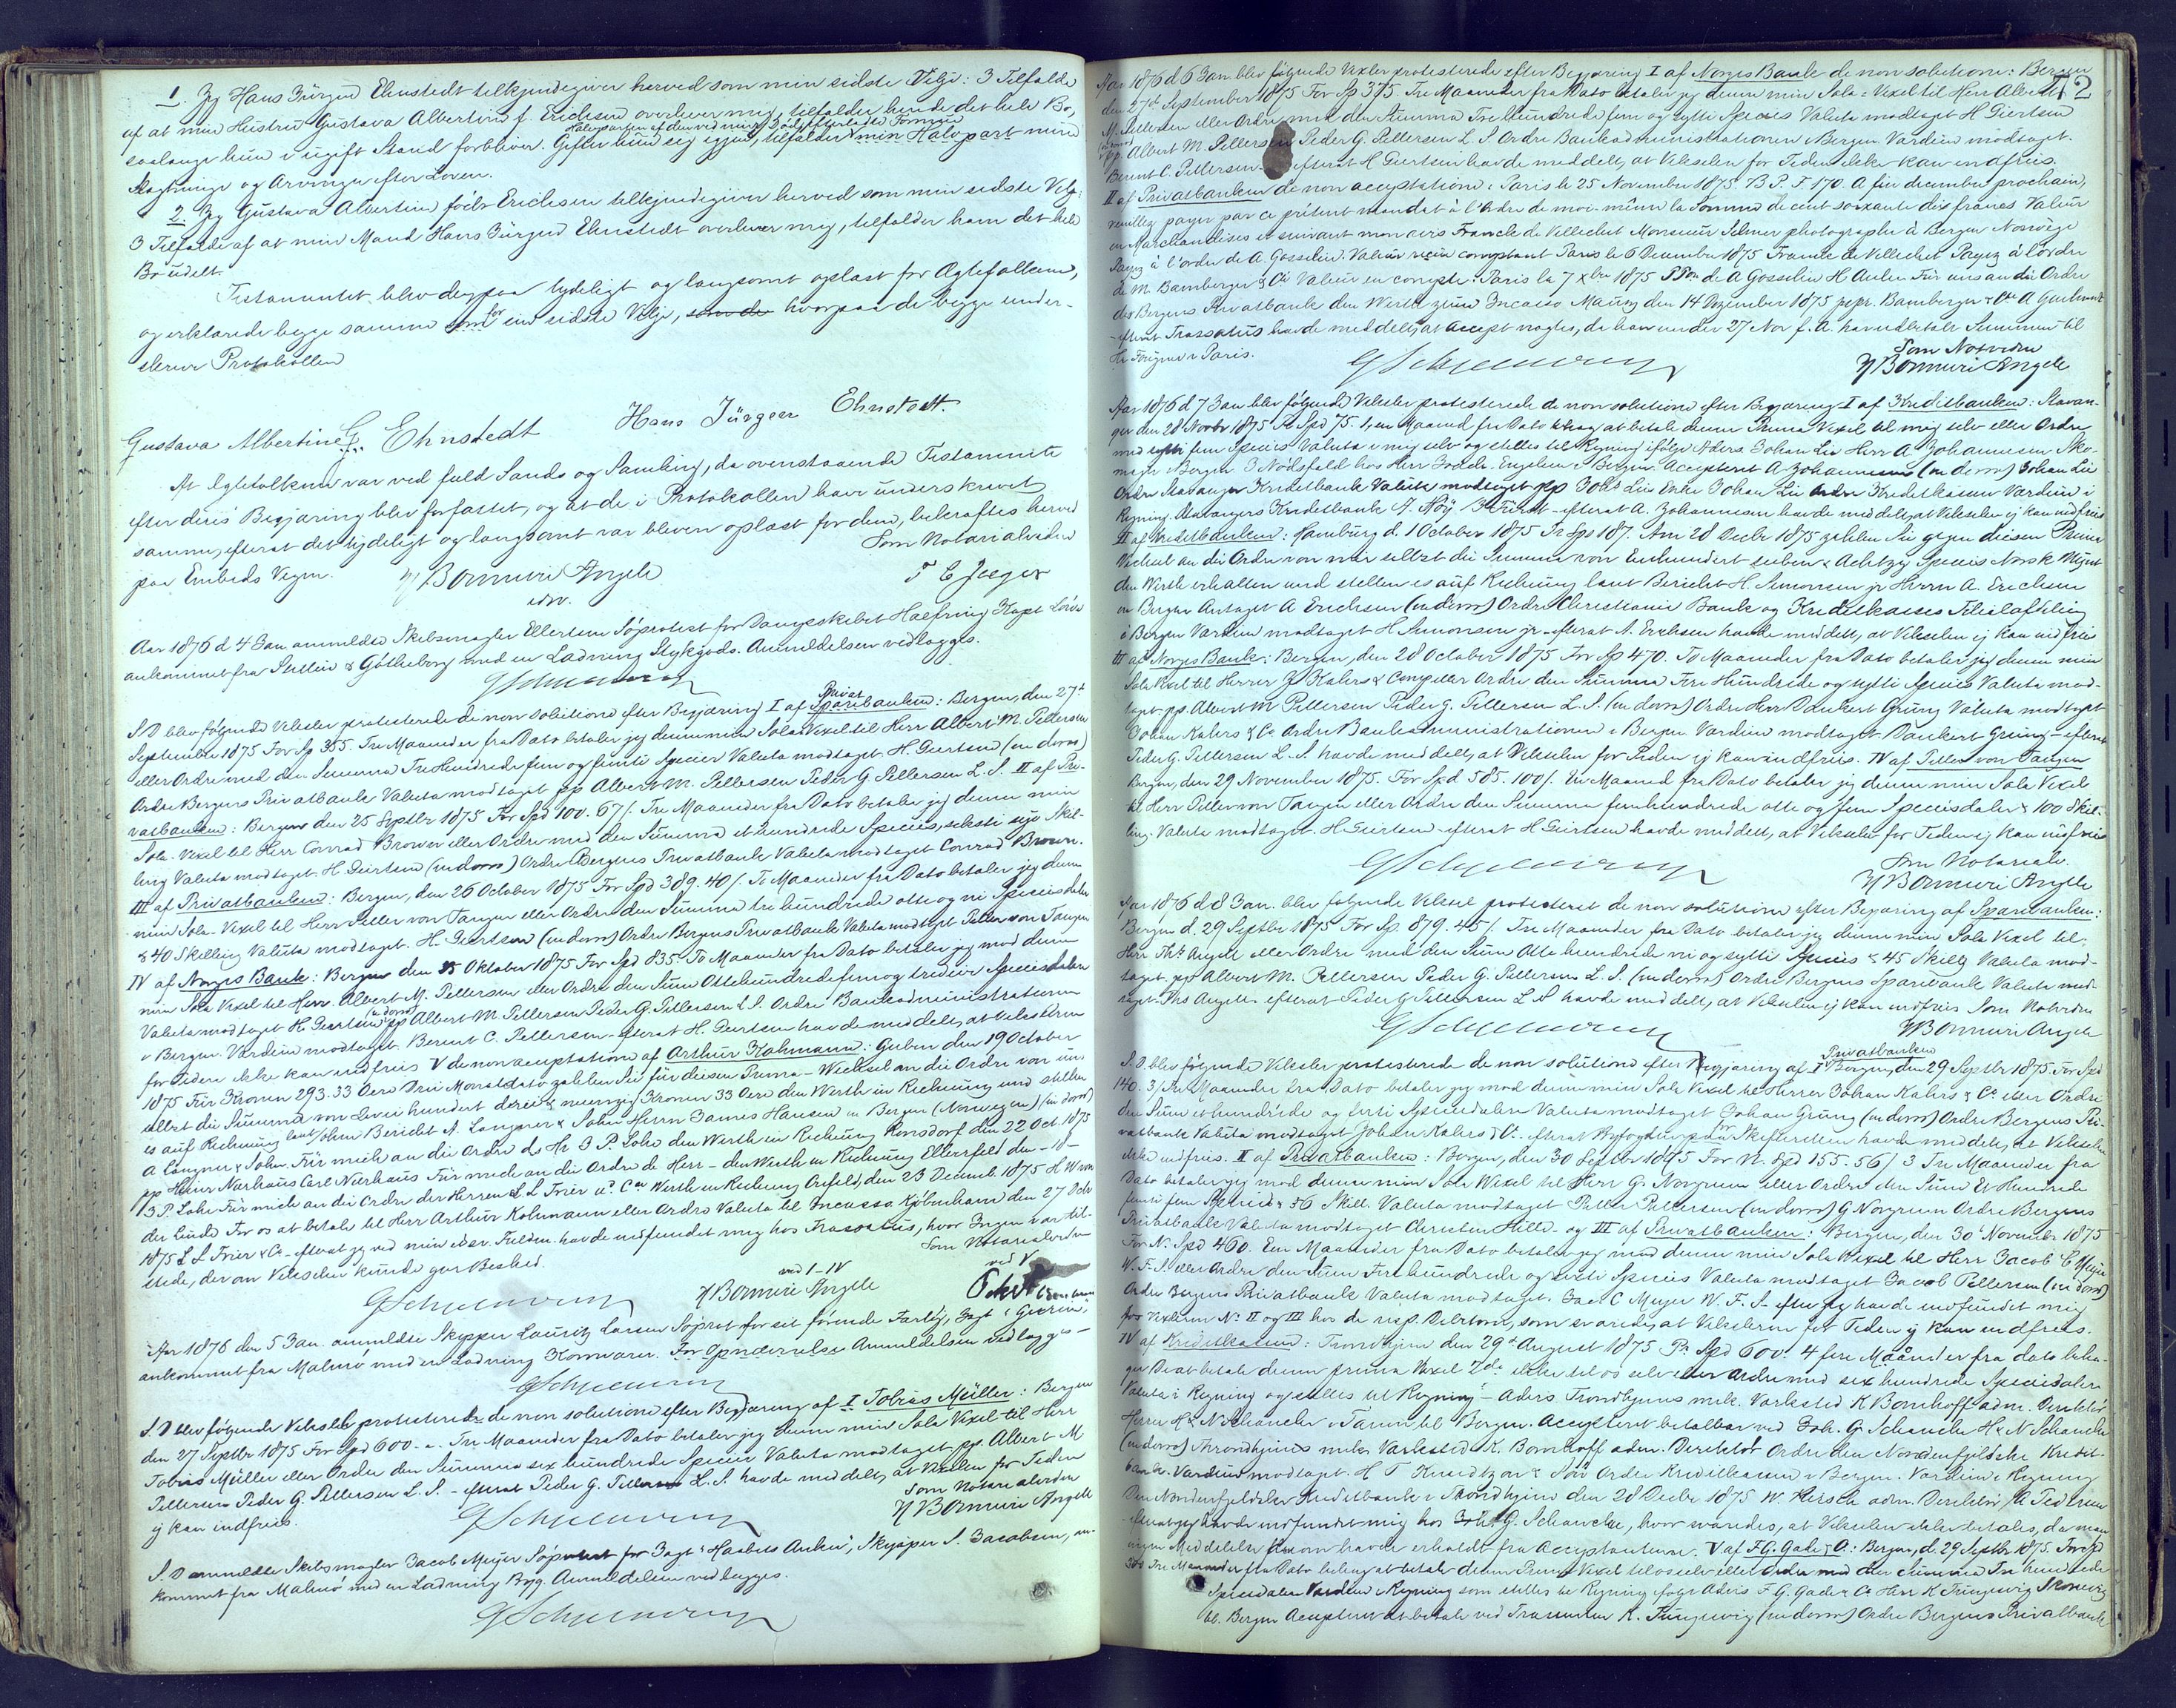 1. Jeg Hans Jürgen Ehnstedt tilkjendegiver herved som min sidste Vilje: I Tilfælde
af at min Hustru Gustava Albertine f. Erichsen overlever mig, tilfalder hende det hele Bo,
Halvparten af den ved min Død efterladte Formue
saalænge hun i ugift Stand forbliver. Gifter hun sig igjen, tilfalder min Halvpart mine
Slægtninge og Arvinger efter Loven.
2. Jeg Gustava Albertine født Erichsen tilkjendegiver herved som min sidste Vilje:
I Tilfælde af at min Mand Hans Jürgen Ehnstedt overlever mig, tilfalder ham det hele
Bo udelt.
Testamentet blev derpaa tydeligt og langsomt oplæst for Ægtefolkene,
og erklærede begge samme som for sin sidste Vilje, som de hvorpaa de begge under-
skrev Protokollen
Gustava Albertine G. Ehnstedt
Hans Jürgen Ehnstedt.
At Ægtefolkene var ved fuld Sands og Samling, da ovenstaaende Testamente
efter deres Begjæring blev forfattet, og at de i Protokollen have underskrevet
samme, efterat det tydeligt og langsomt var bleven oplæst for dem, bekræftes herved
paa Embeds Vegne.
Som Notarialvidne
H Bornemann Angell
T C Jæger
edsv.
Aar 1876 d 4 Jan anmeldte Skibsmægler Ellertsen Søprotest for Dampskibet Haefring Kapt
ankommet fra Stettin & Gøtheborg med en Ladning Stykgods. Anmeldelsen vedlægges.
S. D blev følgende Vexler protesterede de non solutione efter Begjæring I af Privatbanken: Bergen, den 27de
September 1875 For Sp 355. Tre Maaneder fra Dato betaler jeg denne min Sola Vexel til Herr Albert M. Pettersen
eller Ordre med den Summa Tre Hundrede fem og femti Species Valuta modtaget. H. Geertsen (in dorso)
Ordre Bergens Privatbank Valuta modtaget pp Albert M. Pettersen Peder G. Pettersen L. S. II af Pri-
vatbanken: Bergen den 25 Septbr 1875 For Spd 100. 67/. Tre Maaneder fra Dato betaler jeg denne min
Sola-Vexel til Herr Conrad Brown eller Ordre med den Summa et hundrede Species, seksti syv Skil-
ling Valuta modtaget. H. Geertsen (in dorso) Ordre Bergens Privatbank Valuta modtaget Conrad Brown.
III af Privatbanken: Bergen, den 26 October 1875 For Spd 389. 40/. To Maaneder fra Dato betaler jeg denne
min Sola-Vexel til Herr Petter von Tangen eller Ordre den Summa tre hundrede otte og ni Speciesdaler
& 40 Skilling Valuta modtaget. H. Geertsen (in dorso) Ordre Bergens Privatbank Valuta modtaget Petter von Tangen
IV af Norges Bank: Bergen den Oktober 1875 For Spd 835. To Maaneder fra Dato betaler jeg mod denne
min Sola Vexel til Herr Albert M. Pettersen eller Ordre den Sum Ottehundrede fem og tredive Speciesdaler
Valuta modtaget H. Geertsen (in dorso) pp Albert M Pettersen Peder G. Pettersen L S. Ordre Bankadministrationen
i Bergen. Værdien modtaget. Berent C. Pettersen - efterat H. Geertsen havde meddelt, at Vekslerne
for Tiden ikke kan indfries V de non acceptatione af Arthur Kahmann: Guben den 19 October
1875 Für Kronen 293. 33 Oere Drei Monat dato zahlen Sie für diesen Prima-Wechsel an die Ordre von uns
selbst die Summa von Zwei hundert drei & neunzig Kronen 33 Oere den Werth in Rechnung und stellen
es auf Rechnung laut Bericht A. Langner & Sohn Herrn James Hansen in Bergen (Norwegen) (in dorso)
A Langner & Sohn. Für mich an die Ordre des Hr. J. P. Lohe den Werth in Rechnung Ronsdorf den 22 Oct. 1875
pp Heinr Nerhaus Carl Nierhaus Für mich an die Ordre de Herr - den Werth in Rechnung Elberfeld den - 10 -
J P. Lohe Für mich an die Ordre der Herren L. L Frier & Co Werth in Rechnung Crefeld, den 23 Decemb. 1875 H W von
der Linde For os at betale til Herr Arthur Kohmann eller Ordre Valuta til Incasso. Kjøbenhavn den 27 Decbr
1875 L. L Frier & Co - efterat jeg ved min edsv. Fuldm. havde indfundet mig hos Trassatus, hvor Ingen var til-
stede, der om Vekselen kunde give Besked.
Som Notarialvidne
ved I-IV
ved V
H Bornemann Angell
Aar 1876 den 5 Jan. anmeldte Skipper Lauritz Larsen Søprot for sit førende Fartøi, Jagt "Guerin",
ankommet fra Malmø med en Ladning Kornvarer. For Opnævnelse Anmeldelsen vedlægges -
S. D blev følgende Veksler protesterede de non solutione efter Begjæring af I Tobias Müller: Bergen
den 27 Septbr 1875 For Spd 600. -. Tre Maaneder fra Dato betaler jeg denne min Sola Vexel til Herr
Tobias Müller eller Ordre den Summa sex hundrede Species Valuta modtaget pp. Albert M
Pettersen Peder G. Pettersen L. S. - efterat Peder G. Pettersen L. S. havde meddelt, at Vexelen for Tiden
ej kan indfries.
Som Notarialvidne
H Bornemann Angell
S. D anmeldte Skibsmægler Jacob Meyer Søprotest for Jagt "Haabets Anker", Skipper S. Jacobsen, an-
kommet fra Malmø med en Ladning Byg. Anmeldelsen vedlægges.
72
Aar 1876 d 6 Jan. blev følgende Vexler protesterede efter Begjæring I af Norges Bank de non solutione: Bergen
den 27de September 1875 For Sp 375. Tre Maaneder fra Dato betaler jeg denne min Sola-Vexel til Herr Albert
M. Pettersen eller Ordre med den Summa Tre Hundrede fem og sytti Species Valuta modtaget H Geertsen
(in dorso) pp. Albert M. Pettersen Peder G. Pettersen L. S. Ordre Bankadministrationen i Bergen. Værdien modtaget.
Berent C. Pettersen. - efterat H Geertsen havde meddelt, at Vekselen for Tiden ikke kan indfries.
II af Privatbanken de non acceptatione: Paris le 25 November 1875. B. P. F 170. A fin decembre prochain,
veuillez payer par ce présent mandat à l'Ordre de moi-même la Somme de cent soixante dix francs Valeur
en Marchandises et suivant mon avis Franck de Villechet Monsieur Selmer photographe à Bergen Norvège
Payez à l'ordre de A. Gosselin. Valeur reçue comptant Paris le 6 Decembre 1875 Franck de Villechet Payez à l'ordre
de M. Bamberger & Cie Valeur en compte. Paris le 7 Xbre 1875 P Pon de A Gosselin H Aulen Für uns an die Ordre
des Bergens Privatbank den Werth zum Incasso Mainz den 14 Dezember 1875 pepr. Bamberger & Co A
- efterat Trassatus havde meddelt, at Accept nægtes, da han under 27 Nov f. A. har udbetalt Summen til
Hr. in Paris.
Som Notvidne
H Bornemann Angell
Aar 1876 d 7 Jan blev følgende Veksler protesterede de non solutione efter Begjæring I af Kreditbanken: Stavan-
ger den 28 Novbr 1875 Spd 75. 1, en Maaned fra Dato behag at betale denne Prima Vexel til mig selv eller Ordre
med sytti fem Species Valuta i mig selv og stilles til Regning ifølge Advis Johan Lie Herr A Johannesen Sko-
mager i Bergen. I Nødsfald hos Herr Engelsen i Bergen. Accepteret A Johannesen (in dorso) Johan Lie
Ordre Stavanger Kreditbank Valuta modtaget pp Johs Lie Enke Johan Lie Ordre Kreditkassen Værdien i
Regning. Stavangers Kreditbank S. Høy - efterat A. Johannesen havde meddelt, at Vekselen ej kan indfries
II af Kreditbanken: Hamburg d. 1 October 1875 Sp 187. Am 28 Decbr 1875 zahlen Sie gegen diesen Prima
Wechsel an die Ordre von mir selbst die Summa von Einhundert sieben & Achtzig Species Norsk Mynt
den Werth erhalten und stellen es auf Rechnung laut Bericht H. Simonsen jr Herrn A. Erichsen
in Bergen Antaget A Erichsen (in dorso) Ordre Christiania Bank og Kreditkasses Filialafdeling
i Bergen Værdien modtaget H Simonsen jr - efterat A. Erichsen havde meddelt, at Vekselen ej kan indfries
III af Norges Bank: Bergen, den 28 October 1875 For Sp 470. To Maaneder fra Dato betaler jeg denne min
Sola Vexel til Herrer J. Kahrs & Comp eller Ordre den Summa Fire Hundrede og sytti Species Valuta mod-
taget pp. Albert M Pettersen Peder G. Pettersen L. S. (in dorso) Ordre Herr Dankert Grung Valuta modtaget
Johan Kahrs & Co Ordre Bankadministrationen i Bergen Værdien modtaget. Dankert Grung - efterat
Peder G. Pettersen L. S. havde meddelt, at Vekselen for Tiden ej kan indfries. IV af Petter von Tangen
Bergen, den 29 November 1875. For Spd 585. 100/. En Maaned fra Dato betaler jeg denne min Sola Vexel
til Herr Petter von Tangen eller Ordre den Summa femhundrede otte og fem Speciesdaler & 100 Skil-
ling. Valuta modtaget. H Geertsen - efterat H Geertsen havde meddelt, at Vekselen for Tiden ej kan indfries
Som Notarialv.
H Bornemann Angell
Aar 1876 d 8 Jan. blev følgende Veksel protesteret de non solutione efter Begjæring af Sparebanken:
Bergen d. 29 Septbr 1875 For Sp. 879. 45/. Tre Maaneder fra Dato betaler jeg denne min Sola Vexel til
Herr Ths Angell eller Ordre med den Sum Otte hundrede ni og sytti Species & 45 Skillg Valuta mod-
taget pp Albert M. Pettersen Peder G. Pettersen L. S. (in dorso) Ordre Bergens Sparebank Valuta mod-
taget Ths Angell - efterat Peder G Pettersen L S havde meddelt, at Vekselen ej kan indfries Som Notvidne
H Bornemann Angell
S. D. blev følgende Veksler protesterede de non solutione efter Begjæring af I Privatbanken Bergen, den 29 Septbr 1875. For Spd
140. 3/ Tre Maaneder fra Dato betaler jeg mod denne min Sola Vexel til Herrer Johan Kahrs & Co eller Ordre
den Sum et hundrede og forti Speciesdaler Valuta modtaget Johan Grung (in dorso) Ordre Bergens Pri-
vatbank Valuta modtaget Johan Kahrs & Co - efterat Byfogden for Skifteretten havde meddelt, at Vekselen
ikke indfries. II af Privatbanken: Bergen, den 30 Septbr 1875 For N. Spd 155. 56/ 3 Tre Maaneder fra
Dato betaler jeg mod denne min Sola Wexel til Herr G. Norgreen eller Ordre den Sum Et Hundrede
femti fem Species & 56 Skill. Valuta modtaget Petter Pettersen (in dorso) G Norgreen Ordre Bergens
Privatbank Valuta modtaget Christen Hille - og III af Privatbanken: Bergen, den 30te November 1875
For N. Spd 460. Een Maaneder fra Dato betaler jeg mod denne min Sola Wexel til Herr Jacob C Meyer
W. F. S. eller Ordre den Sum Fire hundrede og sexti Species Valuta modtaget Jacob Pettersen (in dorso)
Ordre Bergens Privatbank Valuta modtaget. Jac. C Meyer W. F. S. - efter jeg havde indfundet mig
for Vexlerne No II og III hos de resp. Debitorer, som svarede, at Vekslerne for Tiden ej kan indfries.
IV af Kreditkassen: Trondhjem den 29de August 1875 Pr. Spd 600. 4 fire Maaneder fra dato beha-
ger De at betale denne prima Vexel 2da ikke til os selv eller Ordre med sex hundrede Speciesdaler
Valuta i Regning og stilles til Regning - Advis Trondhjems mek. Værksted K Bomhoff adm. Direktør
Herrer H & N Schancke i Tann til Bergen. Accepteret betalbar ved Joh. G. Schancke H & N Schancke
(in dorso) Throndhjems mek Værksted K. Bomhoff adm. Direktør Ordre den Nordenfjeldske Kredit-
bank. Værdien modtaget. H. T. & Søn Ordre Kreditkassen i Bergen. Værdien i Regning
Den Nordenfjeldske Kreditbank i Trondhjem den 28 Decbr 1875 W. Hirsch adm. Direktør, A Pedersen
- efterat jeg havde indfundet mig hos Joh. G. Schancke, hvor svaredes, at Vekselen ikke betales, da man
ingen Meddelelse derom havde erholdt fra Acceptanterne. V af F. G. Gade & C.: Bergen, d. 29 Septbr 1875. For Spd
300 Tre Maaneder fra Dato behag at betale denne Prima Vexel til os selv eller Ordre med den Summa Tre hundrede
Speciesdaler Værdien i Regning som stilles til Regning ifølge Advis F. G. Gade & Co Herr K Tungesvig
til Bergen Accepteret at betale ved Trassenten K. Tungesvig (in dorso) Ordre Bergens Privatbank